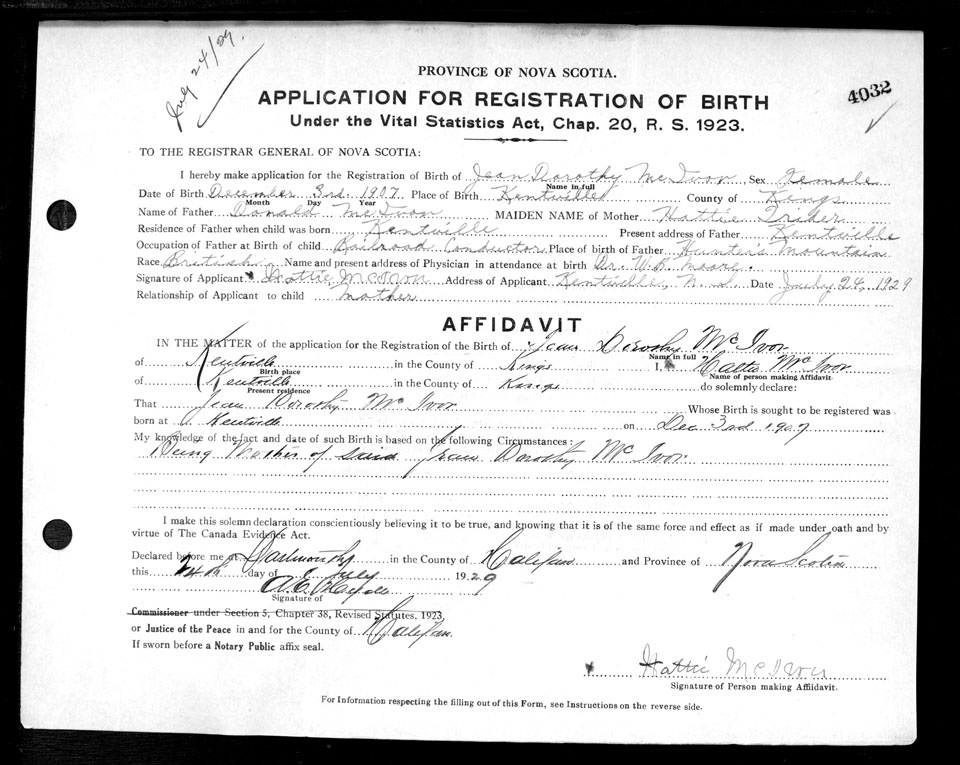 July 24/29.
PROVINCE OF NOVA SCOTIA.
4032
APPLICATION FOR REGISTRATION OF BIRTH
Under the Vital Statistics Act, Chap. 20, R. S. 1923.
TO THE REGISTRAR GENERAL OF NOVA SCOTIA:
I hereby make application for the Registration of Birth of Jean Dorothy McIvor Sex Female
Name in full
Date of Birth December 3rd. 1907 Place of Birth Kentville County of Kings
Month Day Year
Name of Father Donald McIvor MAIDEN NAME of Mother Hattie Trider
Residence of Father when child was born Kentville Present address of Father Kentville
Occupation of Father at Birth of child Railroad Conductor Place of birth of Father Hunter's Mountain
Race British Name and present address of Physician in attendance at birth Dr. W.B. Moore.
Signature of Applicant Hattie McIvor Address of Applicant Kentville, N.S. Date July 24, 1929
Relationship of Applicant to child mother
AFFIDAVIT
IN THE MATTER of the application for the Registration of the Birth of Jean Dorothy McIvor
Name in full
of Kentville in the County of Kings I, Hattie McIvor
Birth place Name of person making Affidavit
of Kentville in the County of Kings do solemnly declare:
Present residence
That Jean Dorothy McIvor Whose Birth is sought to be registered was
born at Kentville on Dec 3rd 1907
My knowledge of the fact and date of such Birth is based on the following Circumstances:
Being Mother of said Jean Dorothy McIvor
I make this solemn declaration conscientiously believing it to be true, and knowing that it is of the same force and effect as if made under oath and by
virtue of The Canada Evidence Act.
Declared before me at Dartmouth in the County of Halifax and Province of Nova Scotia
this 24th day of July 1929
Signature of
Commissioner under Section 5, Chapter 38, Revised Statutes, 1923,
or Justice of the Peace in and for the County of Halifax.
If sworn before a Notary Public affix seal.
Hattie McIvor
Signature of Person making Affidavit.
For Information respecting the filling out of this Form, see Instructions on the reverse side.